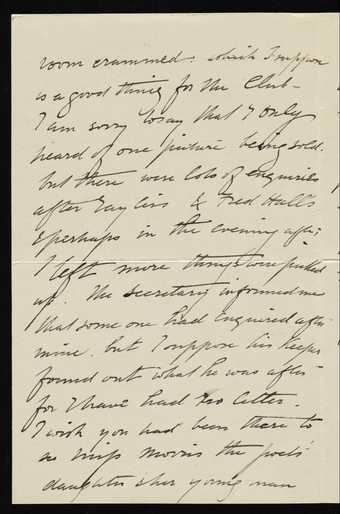 room crammed. which I suppose
is a good thing for the Club -
I am sorry to say that I only
heard of one picture being sold.
but there were lots of enquiries
after Gaylers & Fred Halls
& perhaps in the evening after
I left more things were picked
up. The Secretary informed me
that some one had Enquired after
mine. but I suppose his keeper
found out what he was after
for I have had no letter.
I wish you had been there to
see Miss Morris the poets'
daughter & her young man